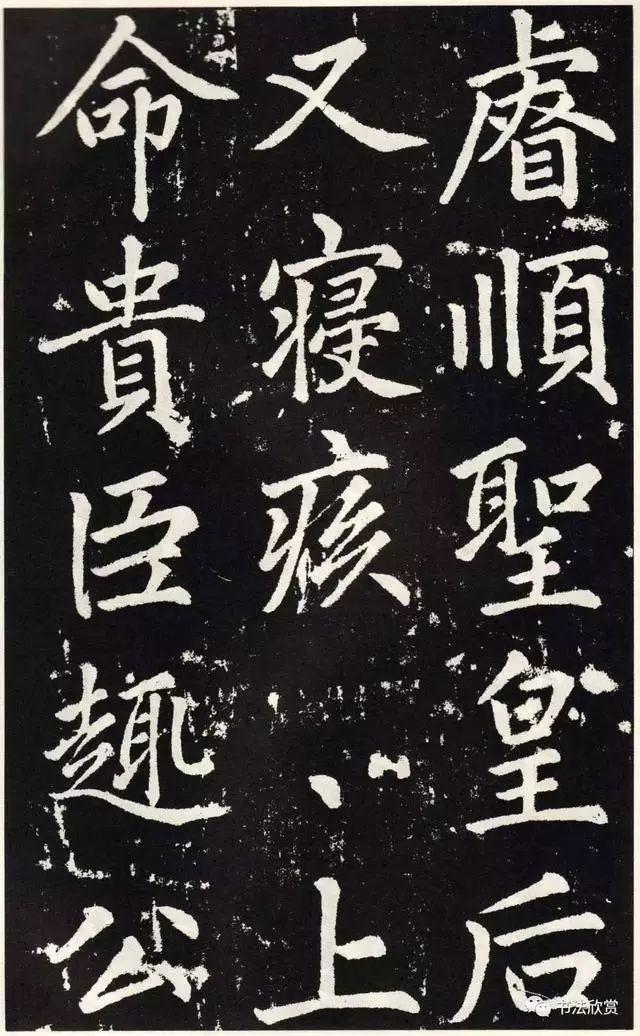 睿順聖皇后
又寝疾上
命貴臣趣公
书法欣赏